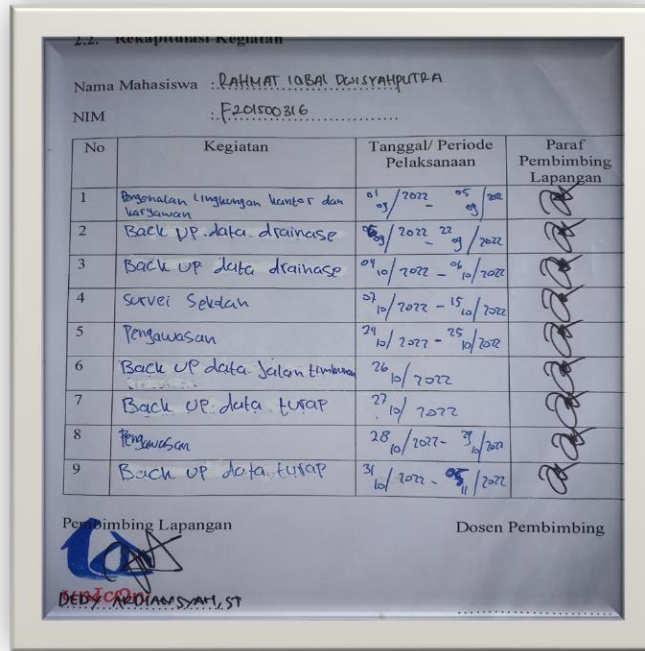 2.2. Rekapitulasi Kegiatan
Nama Mahasiswa : RAHMAT IQBAL DWISYAHPUTRA
NIM : F201500316
No Kegiatan Tanggal/ Periode Pelaksanaan Paraf Pembimbing Lapangan
1 Pengenalan lingkungan kantor dan karyawan 01/09/2022 - 05/09/2022
2 Back UP data drainase 06/09/2022 - 22/09/2022
3 Back UP data drainase 04/10/2022 - 06/10/2022
4 Survei Sekdan 07/10/2022 - 15/10/2022
5 Pengawasan 24/10/2022 - 25/10/2022
6 Back UP data jalan timbunan 26/10/2022
7 Back UP data turap 27/10/2022
8 Pengawasan 28/10/2022 - /10/2022
9 Back UP data turap 31/10/2022 - 05/11/2022
Pembimbing Lapangan Dosen Pembimbing
DEDY ARDIANSYAH, ST